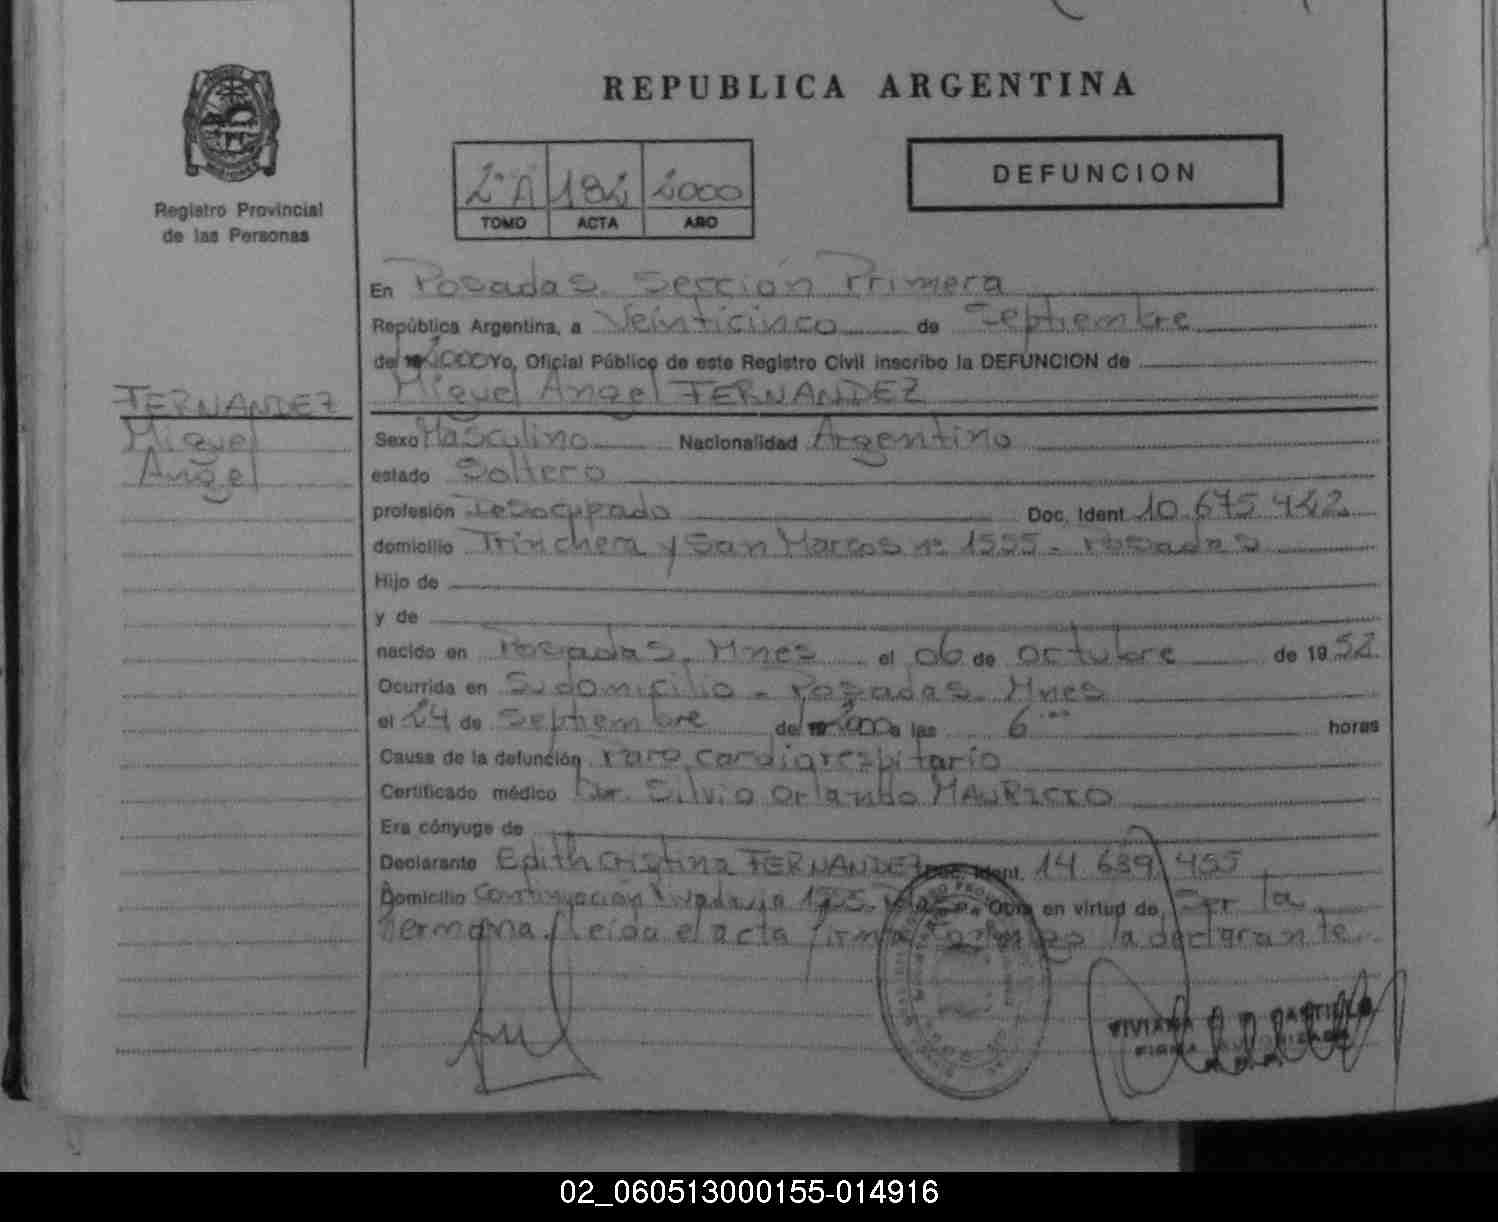 REPUBLICA ARGENTINA
Registro Provincial
de las Personas
2º A 182 2000
TOMO ACTA AÑO
DEFUNCION
En Posadas. Sección Primera
República Argentina, a Veinticinco de Septiembre
de 2000 Yo, Oficial Público de este Registro Civil inscribo la DEFUNCION de
Miguel Angel FERNANDEZ
FERNANDEZ
Miguel
Angel
Sexo Masculino Nacionalidad Argentino
estado Soltero
profesión Desocupado Doc. Ident 10.675.442
domicilio Trinchera y San Marcos nº 1555 - Posadas
Hijo de
y de
nacido en Posadas. Mnes el 06 de octubre de 1952
Ocurrida en Su domicilio - Posadas. Mnes
el 24 de Septiembre de 2000 a las 6 horas
Causa de la defunción Paro cardiorespitario
Certificado médico Dr. Silvio Orlando MAURICIO
Era cónyuge de
Declarante Edith Cristina FERNANDEZ Doc. Ident 14.689.455
Domicilio Continuación Obra en virtud de Ser la
hermana. Leída el acta firma la declarante.
VIVIANA CASTILLO
02_060513000155-014916